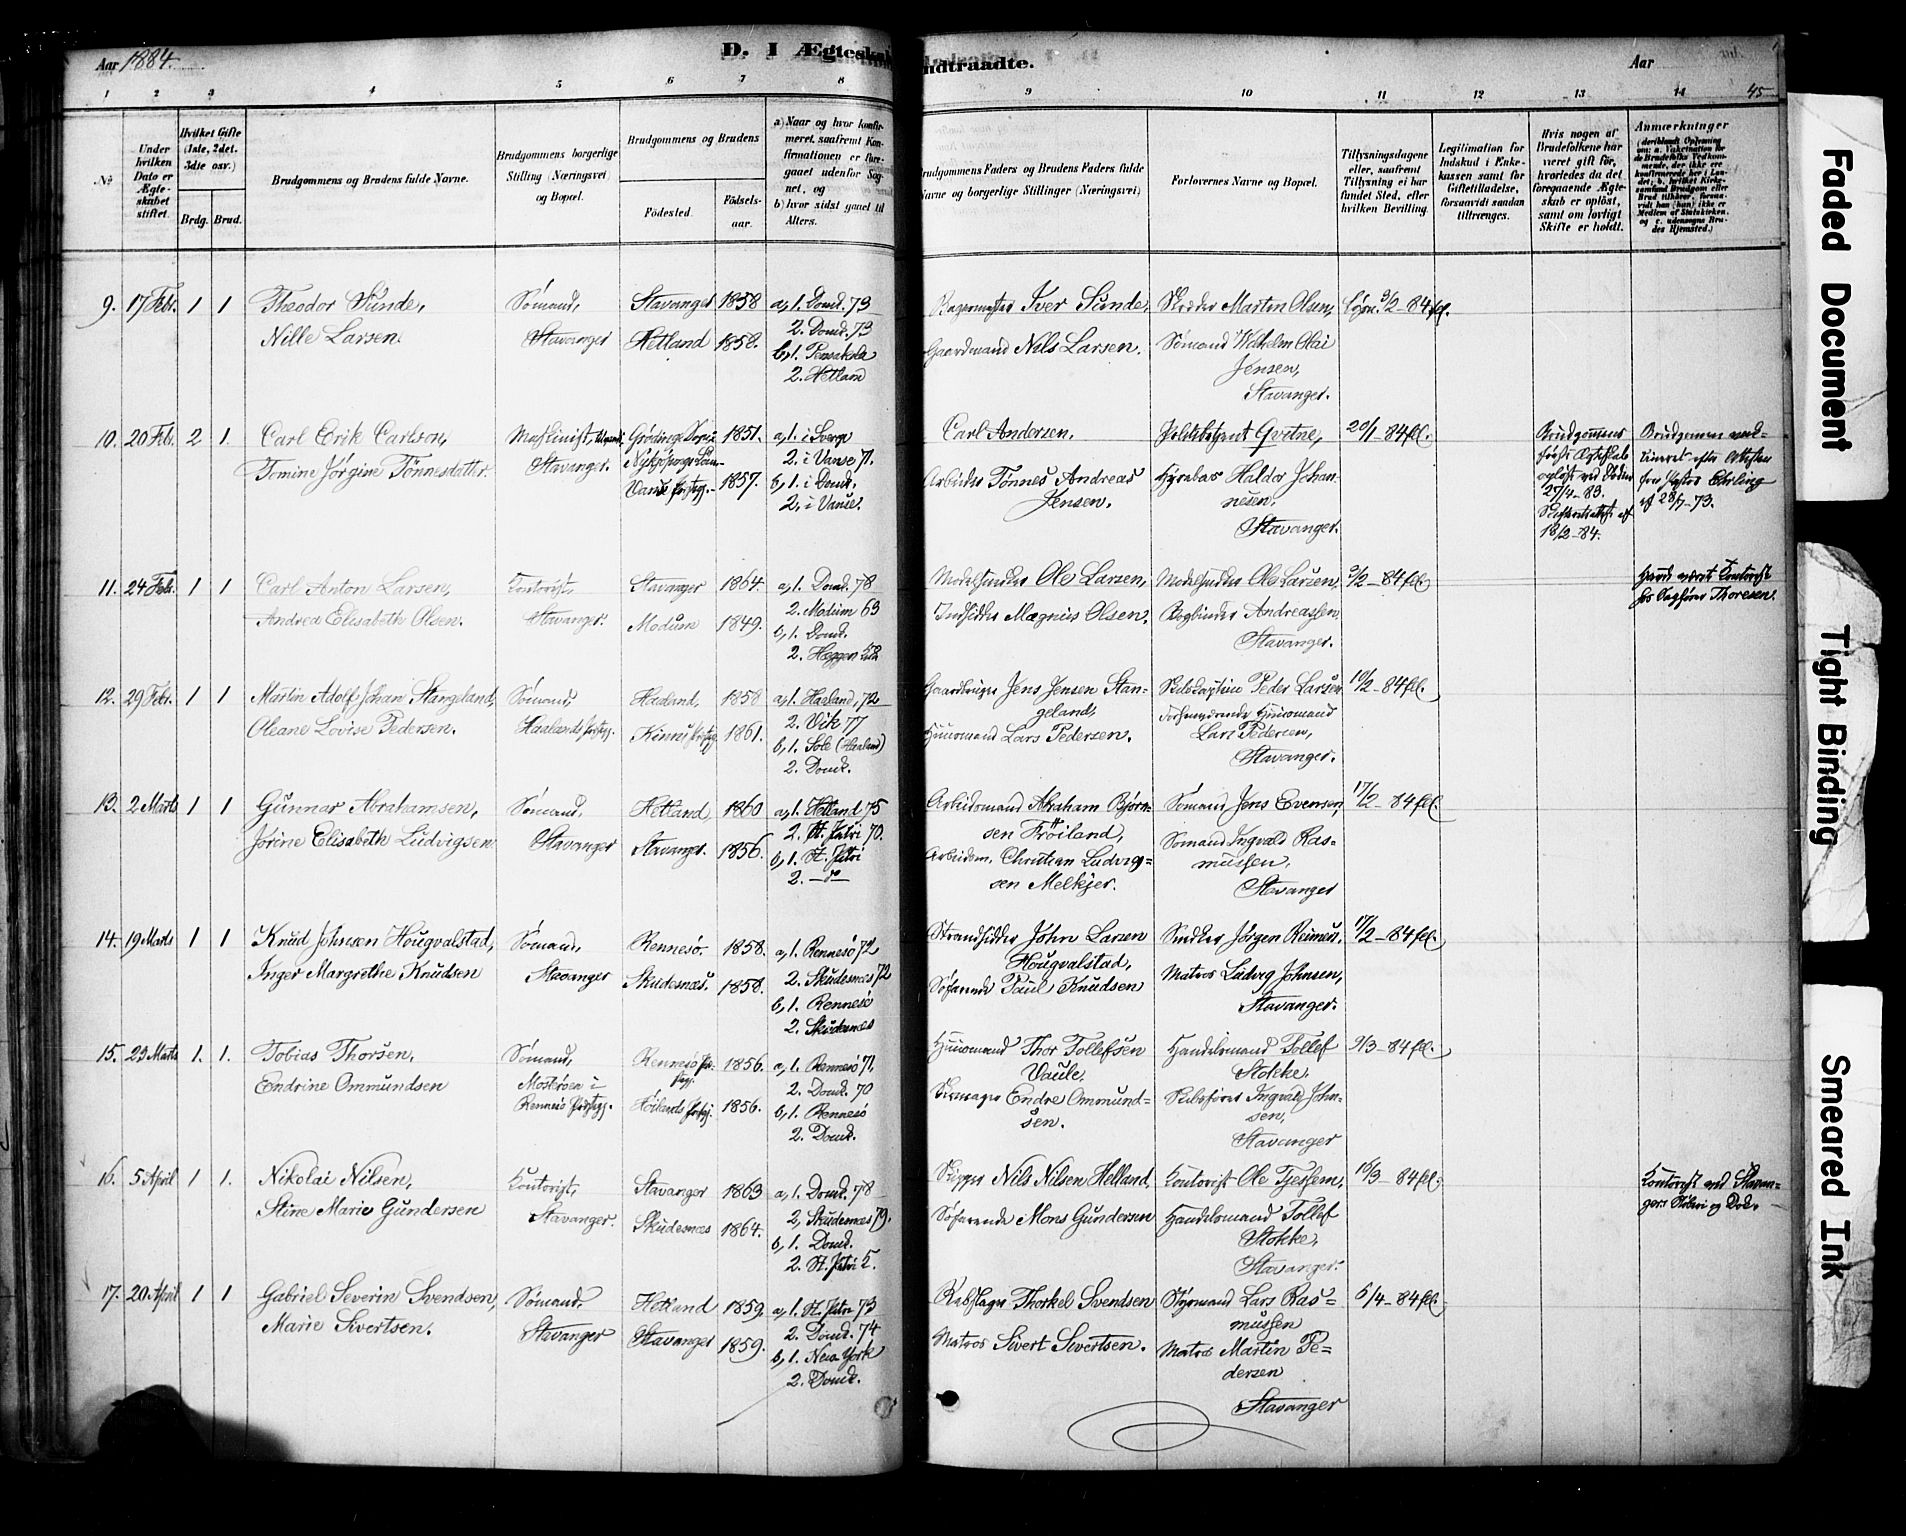 Aar 1884.
D. I Ægteska
ndtraadte.
Aar
45
1 2 3 4 5 6 7 8 9 10 11 12 13 14
№
Under hvilken Dato er Ægteskabet stiftet.
Hvilket Gifte (1ste, 2det. 3die osv.)
Brdg. Brud.
Brudgommens og Brudens fulde Navne.
Brudgommens borgerlige Stilling (Næringsvei) og Bopæl.
Brudgommens og Brudens
Födested.
Födselsaar.
a) Naar og hvor konfirmeret, saafremt Konfirmationen er foregaaet udenfor Sognet, og
b) hvor sidst gaaet til Alters.
Brudgommens Faders og Brudens Faders fulde Navne og borgerlige Stillinger (Næringsvei)
Forlovernes Navne og Bopæl.
Tillysningsdagene eller, saafremt Tillysning ei har fundet Sted, efter hvilken Bevilling.
Legitimation for Indskud i Enkekassen samt for Giftetilladelse, forsaavidt saadan tiltrænges.
Hvis nogen af Brudefolkene har været gift før, hvorledes da det foregaaende Ægteskab er opløst, samt om lovligt Skifte er holdt.
Anmærkninger
9. 17 Febr. 1 1 Theodor Sunde, Sømand, Stavanger 1858 a, 1. Domk. 73
Nille Larsen. Stavanger Hetland 1858. 2. Domk. 73
b, 1. Pensakola
2. Hetland
Bagermester Iver Sunde, Skrædder Martin Olsen, 3/2 - 84 fl.
Gaardmand Nils Larsen. Sømand Wilhelm Olai
Jensen,
Stavanger.
10. 20 Feb. 2 1. Carl Erik Carlson, Maskinist, Stavanger. 1851. a, 1. i Sverge
Tomine Jörgine Tönnesdatter Vanse Prstgj. 1857. 2. i Vanse 71.
b, 1. i Domk.
2. i Vanse.
Carl Andersen. Politibetjent Qvitne, 20/1 - 84 fl.
Arbeider Tönnes Andreas Jensen. Hyrebas Haldor Johannesen,
Stavanger.
Brudgommens første Ægteskab opløst ved Døden 27/4 - 83. Skifteattest af 18/2 - 84.
11. 24 Feb. 1 1 Carl Anton Larsen, Kontorist, Stavanger 1864. a, 1. Domk. 78
Andrea Elisabeth Olsen. Stavanger. Modum 1849. 2. Modum 63
b, 1. Domk.
2. Heggen
Ole Larsen, Ole Larsen, 3/2 - 84 fl.
Indsidder Magnus Olsen. Bogbinder Andreassen
Stavanger.
Kontorist hos Sagfører Thoresen.
12. 29 Febr. 1 1 Martin Adolf Johan Stangeland, Sømand, Haaland, 1858 a, 1. Haaland, 72
Oleane Lovise Pedersen. Haalands Prstgj. Kinns Prstgj. 1861. 2. Vik 77
b, 1. Sole (Haaland)
2. Domk.
Gaardbruger Jens Jensen Stangeland, Skibskaptein Peder Larsen 10/2 - 84 fl.
Huusmand Lars Pedersen. Forhenværende Huusmand Lars Pedersen,
Stavanger.
13. 2 Marts 1 1 Gunnar Abrahamsen, Sømand, Hetland, 1860 a, 1. Hetland 75
Jorine Elisabeth Ludvigsen Stavanger Stavanger. 1856. 2. St. Petri 70.
b, 1. St. Petri
2. — do —
Arbeidsmand Abraham Björnsen Fröiland, Sømand Jens Evensen, 17/2 - 84 fl.
Arbeidsm. Christian Ludvigsen Melkjer. Sømand Ingvald Rasmussen,
Stavanger
14. 19 Marts 1 1 Knud Johnsen Hougvalstad, Sømand, Rennesö. 1858. a, 1. Rennesö 72
Inger Margrethe Knudsen Stavanger Skudesnæs. 1858. 2. Skudesnæs 72
b, 1. Rennesö
2. Skudesnæs
Strandsidder John Larsen Hougvalstad, Snedker Jörgen Reimers. 17/2 - 84 fl.
Söfarende Paul Knudsen Matros Ludvig Johnsen,
Stavanger.
15. 23 Marts 1. 1. Tobias Thorsen, Sømand, Rennesö Prstgj. 1856. a, 1. Rennesö 71.
Endrine Ommundsen Mosteröen i Rennesö Prstgj. Höilands Prstgj. 1856. 2. Domk. 70
b, 1. Rennesö
2. Domk.
Huusmand Thor Tollefsen Vaule, Handelsmand Tollef Stokke, 9/3 - 84 fl.
Endre Ommundsen. Skibsförer Ingvald Johnsen,
Stavanger
16. 5 April 1 1. Nikolai Nilsen, Kontorist, Stavanger 1863 a, 1. Domk. 78
Stine Marie Gundersen Stavanger. Skudesnæs 1864. 2, Skudesnæs 79.
b, 1. Domk.
2. St. Petri
Skipper Nils Nilsen Helland Kontorist Ole Tjessem, 16/3 - 84 fl.
Söfarende Mons Gundersen Handelsmand Tollef Stokke,
Stavanger.
Kontorist ved Stavanger Støberi og Dok.
17. 20 April 1 1 Gabriel Severin Svendsen, Sømand, Hetland 1859. a, 1. St. Petri 73
Marie Sivertsen. Stavanger Stavanger 1859. 2. Domk. 74
b, 1. New York
2. Domk.
Rebslager Thorkel Svendsen Styrmand Lars Rasmussen 6/4 - 84 fl.
Matros Sivert Sivertsen. Matros Martin Pedersen
Stavanger
Faded Document
Tight Binding
Smeared Ink